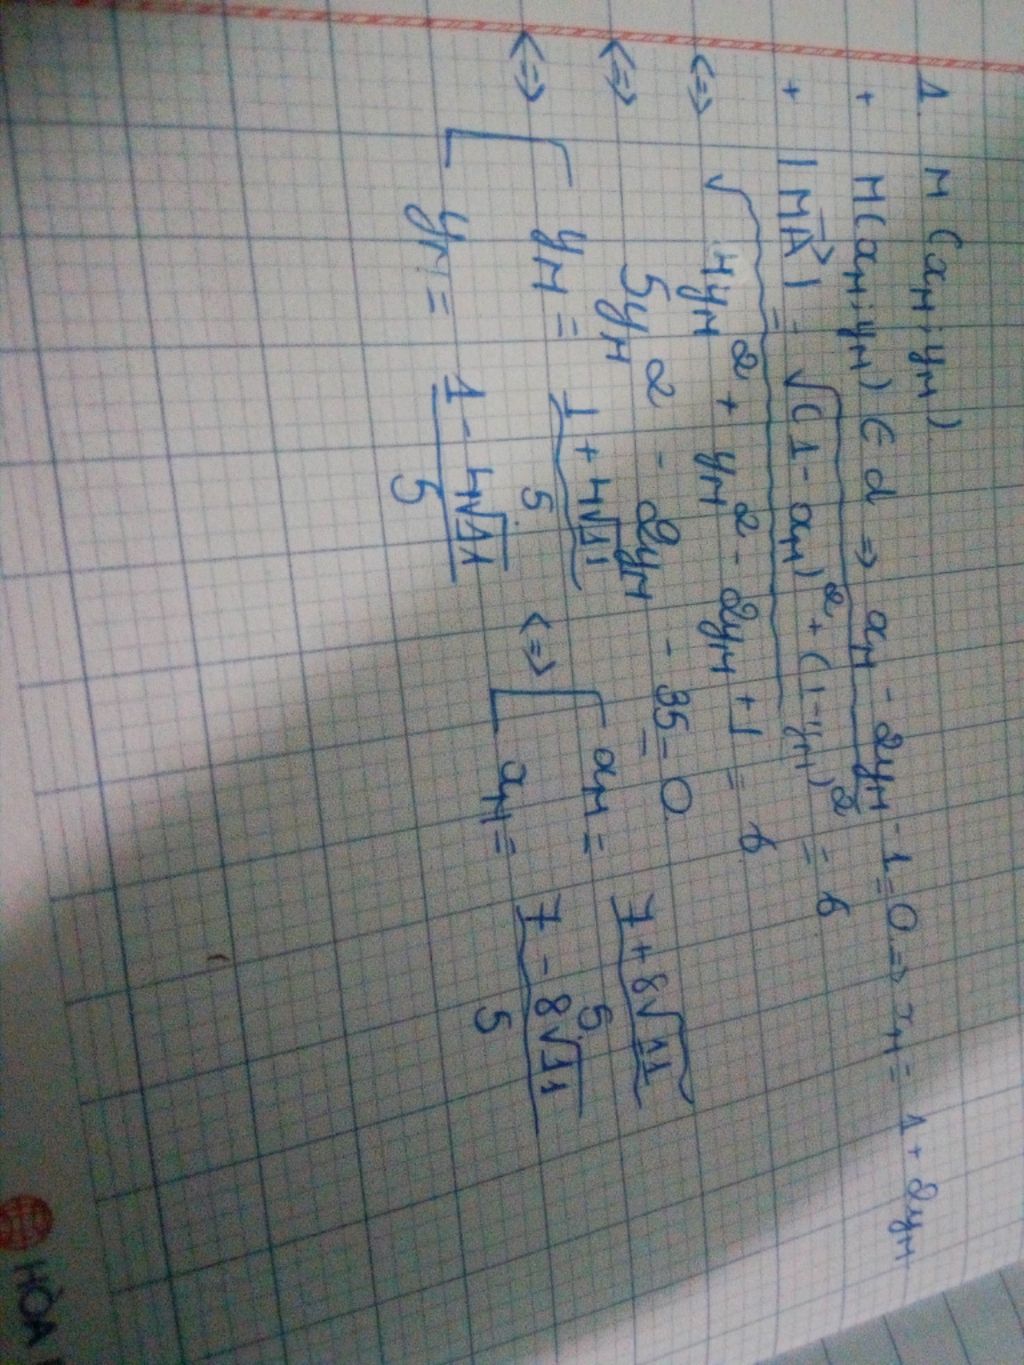 1. M (x_M ; y_M)
+ M(x_M ; y_M) ∈ d => x_M - 2y_M - 1 = 0 => x_M = 1 + 2y_M
+ |\overrightarrow{MA}| = √((1 - x_M)² + (1 - y_M)²) = 6
<=> √(4y_M² + y_M² - 2y_M + 1) = 6
<=> 5y_M² - 2y_M - 35 = 0
<=> [ y_M = (1 + 4√11)/5 <=> [ x_M = (7 + 8√11)/5
y_M = (1 - 4√11)/5 x_M = (7 - 8√11)/5
HÒA